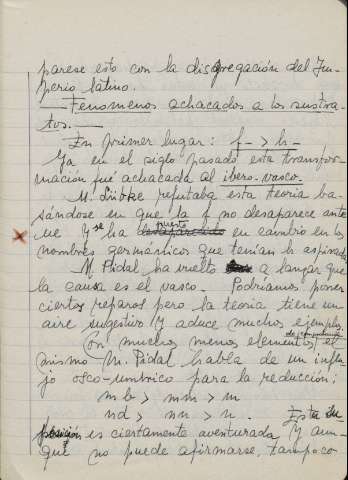 parese esto con la disgregación del Im-
perio latino.
— Fenomenos achacados a los sustra-
tos. —
En primer lugar: f- > h-
Ya en el siglo pasado esta transfor-
mación fué achacada al ibero-vasco.
M. Lübke refutaba esta teoria ba-
sándose en que la f no desaparece ante
ue y se ha puesto en cambio en los
nombres germánticos que tenían h aspirada
M. Pidal ha vuelto a lanzar que
la causa es el vasco. Podriamos poner
ciertos reparos pero la teoria tiene un
aire sugestivo y aduce muchos ejemplos.
Con muchos menos elementos el
mismo M. Pidal habla de un influ-
jo osco-umbrico para la reducción:
mb > mm > m
nd > nn > n. Esta su-
posición es ciertamente aventurada y aun-
que no puede afirmarse, tampoco